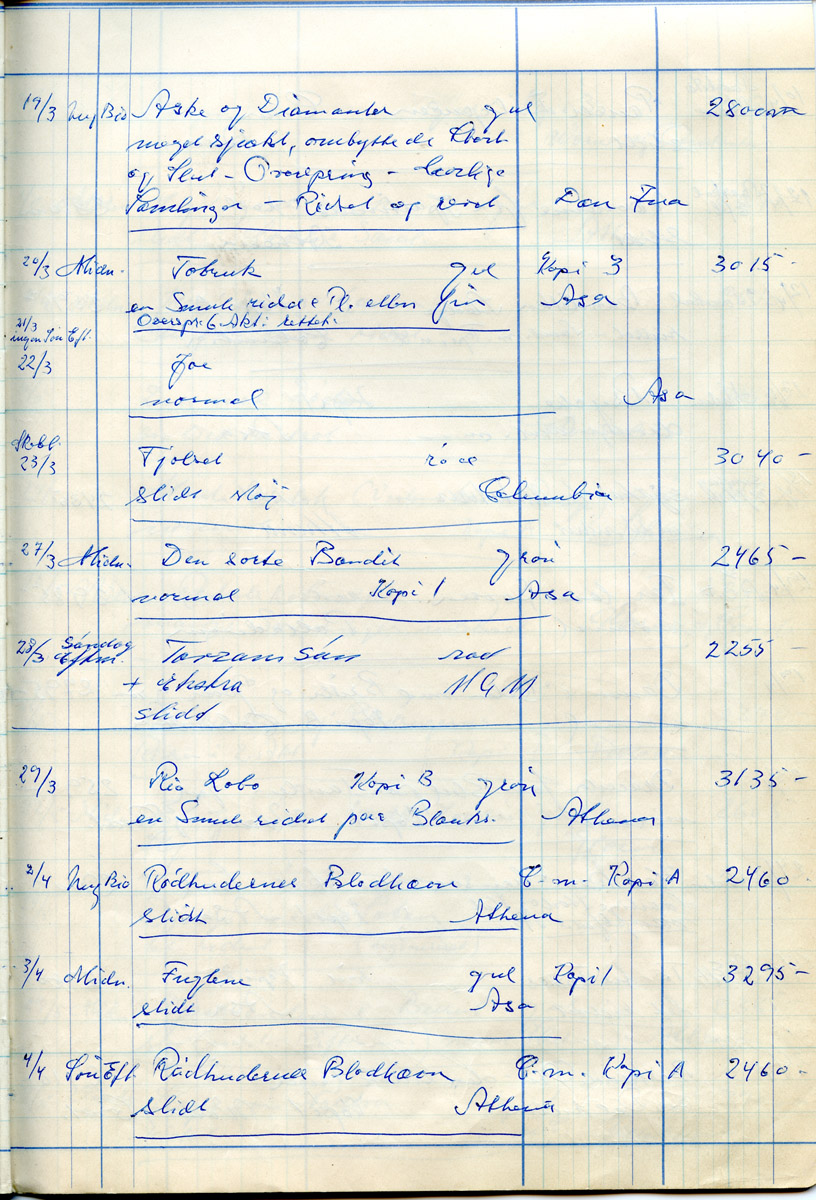 19/3 Ung Bio Aske og Diamanter gul 2800
meget sjasket, ombyttede
og Slut - Overspring - kraftige
Samlinger - Ridset og slidt Dan Ina
20/3 Midn. Tobruk gul Kopi 3 3015-
en Smule ridset Pl. ellers fin Asa
Overspr. 6 Akt. rettet.
21/3
ingen Søn Eft.
22/3 Joe
normal Asa
Skobl.
23/3 Fjolset rød 3040-
slidt støj Columbia
27/3 Midn. Den sorte Bandit grøn 2465-
normal Kopi 1 Asa
28/3 Søndag Eftm. Tarzans Søn rød 2255-
+ Ekstra MGM
slidt
29/3 Rio Lobo Kopi B grøn 3135-
en Smule ridset paa Blanks. Athena
2/4 Ung Bio Rødhudernes Blodhævn C-m- Kopi A 2460-
slidt Athena
3/4 Midn. Fuglene gul Kopi 1 3295-
slidt Asa
4/4 Søn Eft. Rødhudernes Blodhævn C-m- Kopi A 2460-
slidt Athena